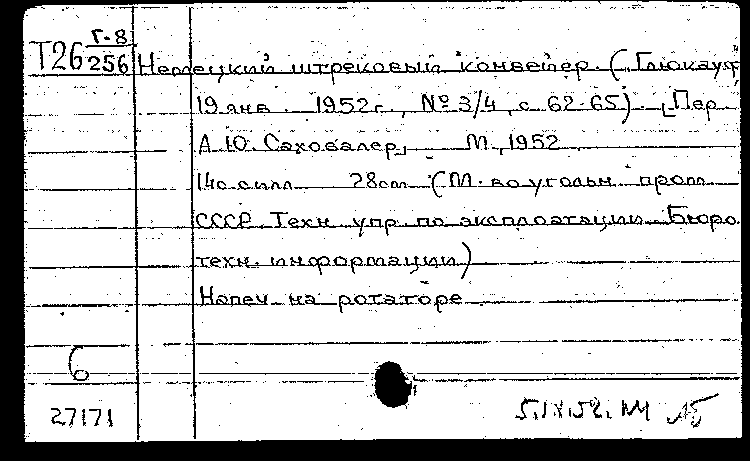 Т26 Г-8
256
Немецкий штрековый конвейер. („Глюкауф
19 янв. 1952г., № 3/4, с 62-65). [Пер.
А.Ю. Саховалер] М., 1952
14с илл 28см (М-во угольн пром
СССР. Техн упр по эксплоатации Бюро
техн. информации)
Напеч на ротаторе
6
27171 5.IX.52.